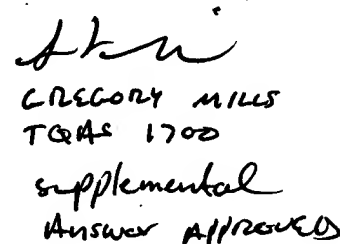 GREGORY MILLS
TQAS 1700
supplemental
Answer APPROVED